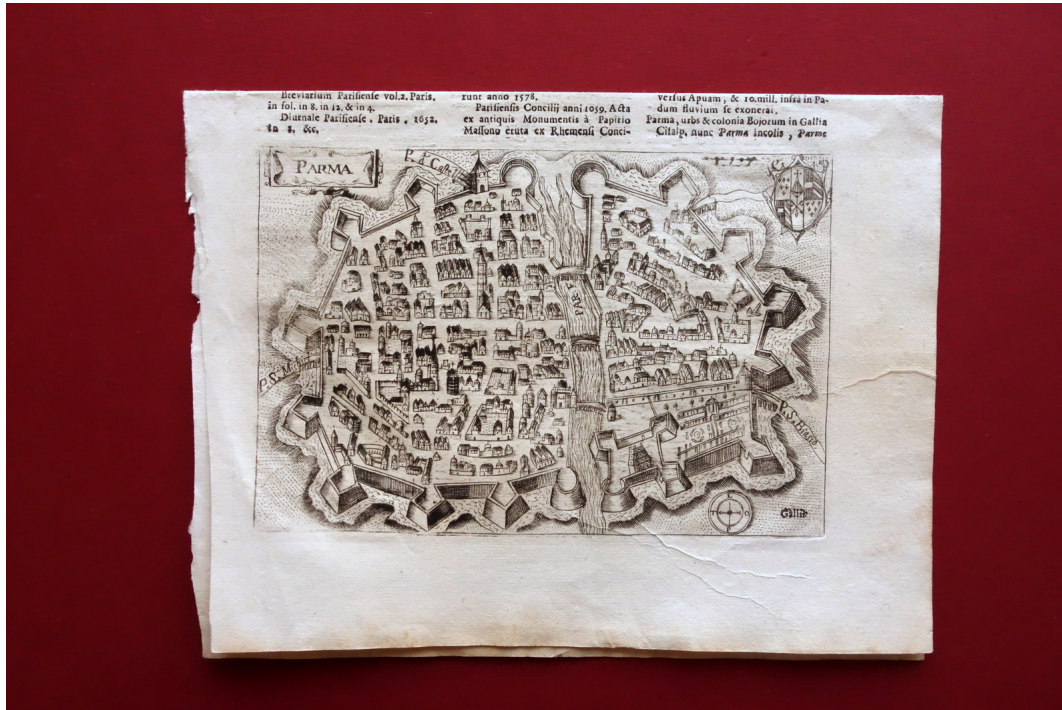 Breviarium Parisiense vol.2. Paris.
in fol. in 8. in 12. & in 4.
Diurnale Parisiense. Paris, 1652.
in 8. &c.
runt anno 1578.
Parisiensis Concilij anni 1059. Acta
ex antiquis Monumentis à Papirio
Massono eruta ex Rhemensi Conci-
versus Apuam, & 10. mill. infrà in Pa-
dum fluvium se exonerat.
Parma, urbs & colonia Bojorum in Gallia
Cisalp. nunc Parma incolis, Parme
PARMA
PAR
Gallia